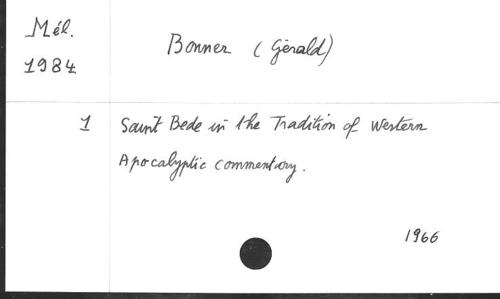 Mél.
1984
Bonner (Gérald)
1 Saint Bede in the Tradition of Western
Apocalyptic commentary.
1966